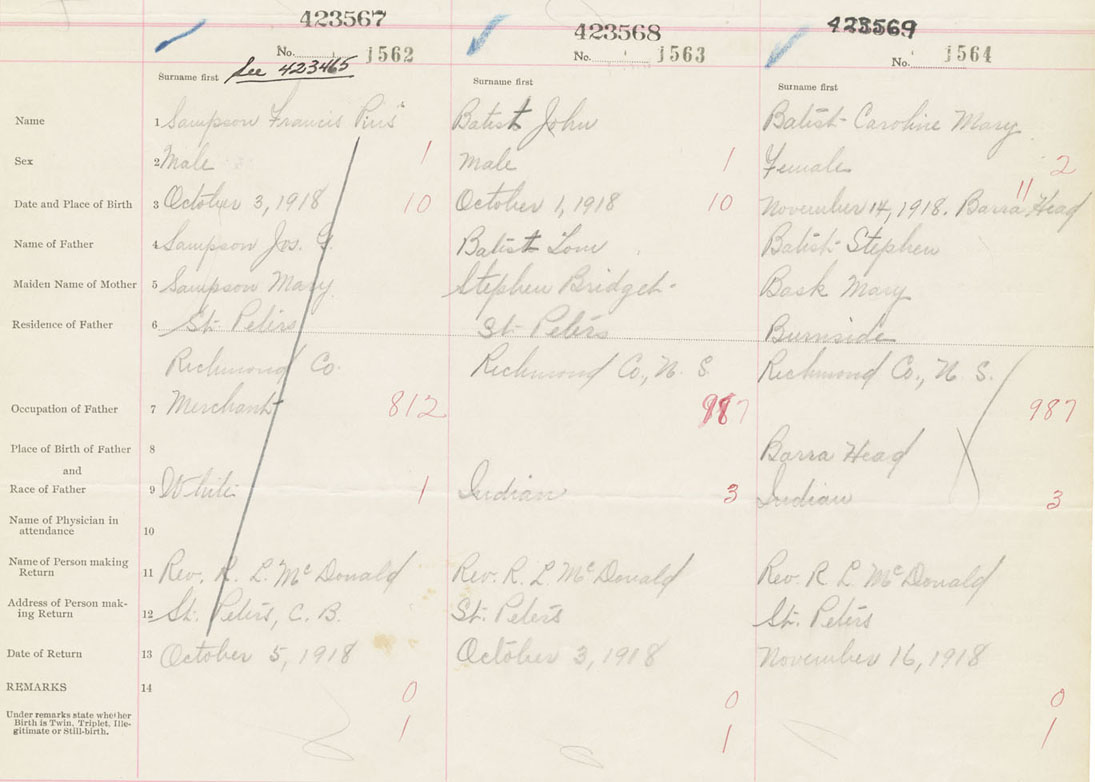 423567 423568 423569
No. 1562 No. 1563 No. 1564
See 423465
Surname first Surname first Surname first
Name 1 Sampson Francis Pius Batist John Batist Caroline Mary
Sex 2 Male 1 Male 1 Female 2
Date and Place of Birth 3 October 3, 1918 10 October 1, 1918 10 November 14, 1918. Barra Head 11
Name of Father 4 Sampson Jos. G. Batist Tom Batist Stephen
Maiden Name of Mother 5 Sampson Mary Stephen Bridget Bask Mary
Residence of Father 6 St. Peters St. Peters Burnside
Richmond Co. Richmond Co., N. S. Richmond Co., N. S.
Occupation of Father 7 Merchant 812 987 987
Place of Birth of Father 8 Barra Head
and
Race of Father 9 White 1 Indian 3 Indian 3
Name of Physician in
attendance 10
Name of Person making
Return 11 Rev. R. L. McDonald Rev. R. L. McDonald Rev. R. L. McDonald
Address of Person mak-
ing Return 12 St. Peters, C. B. St. Peters St. Peters
Date of Return 13 October 5, 1918 October 3, 1918 November 16, 1918
REMARKS 14 0 0 0
Under remarks state whether
Birth is Twin, Triplet, Ille-
gitimate or Still-birth. 1 1 1